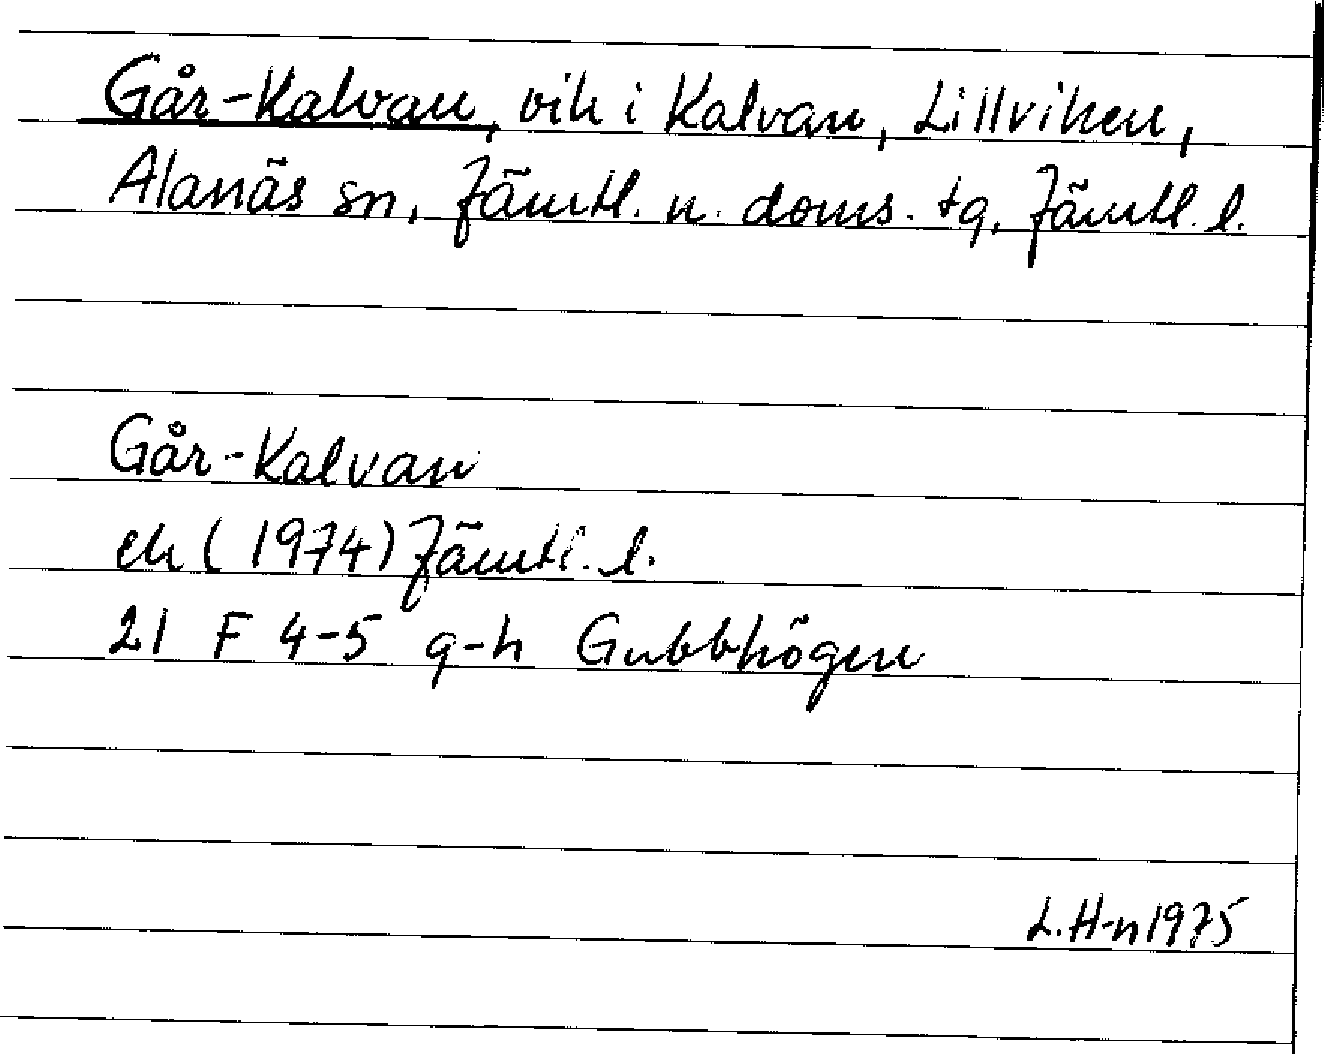 Går-Kalvan, vik i Kalvan, Lillviken,
Alanäs sn, Jämtl. n. doms. tg, Jämtl. l.
Går-Kalvan
ek (1974) Jämtl. l.
21 F 4-5 g-h Gubbhögen
L. H-n 1975